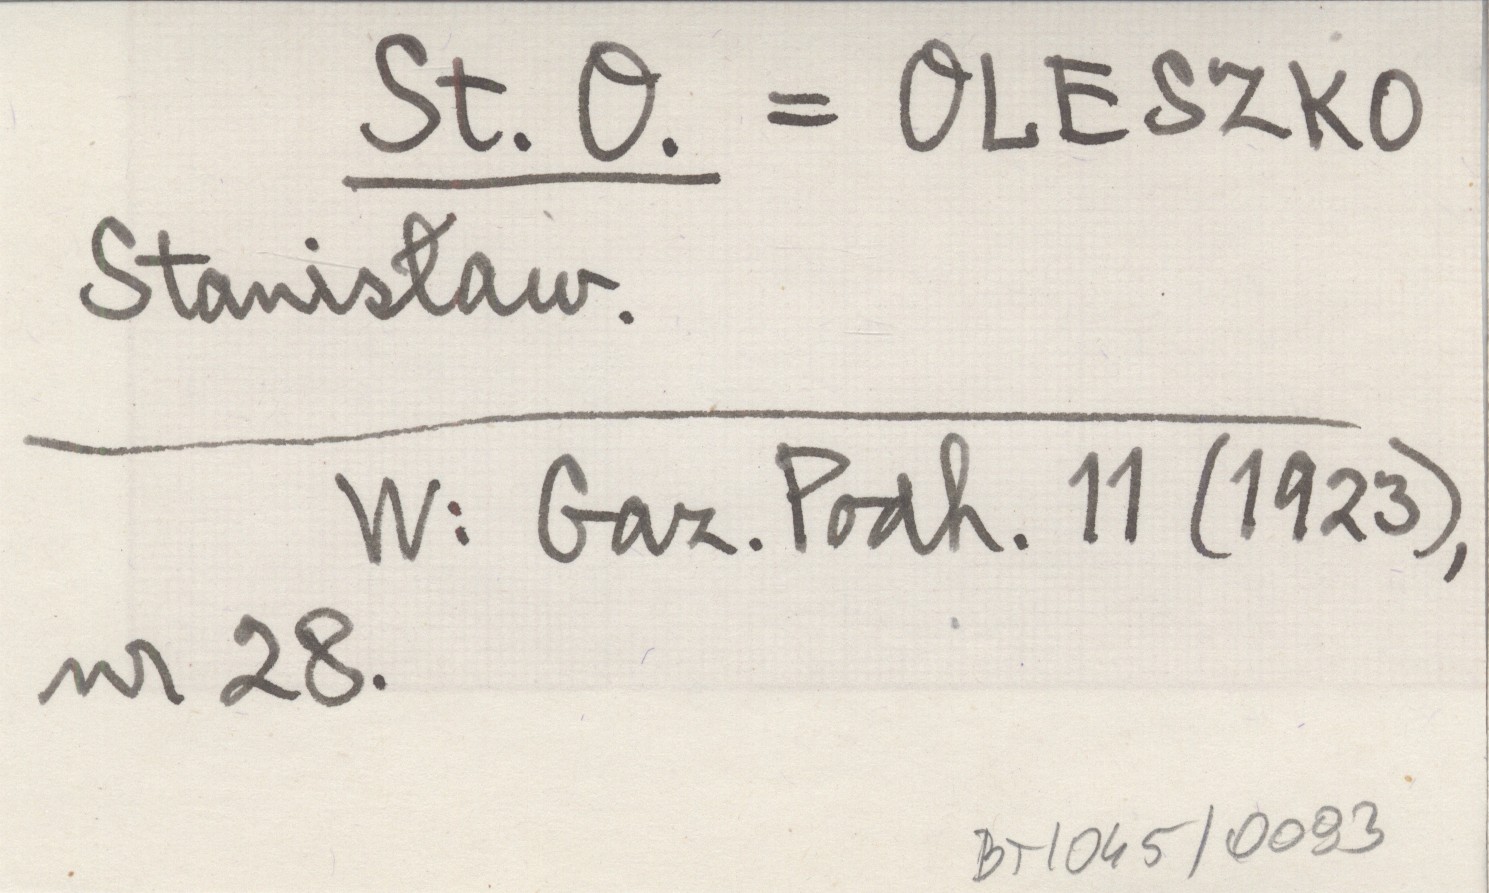 St. O. = OLESZKO
Stanisław.
W: Gaz. Podh. 11 (1923),
nr 28.
BT/045/0093